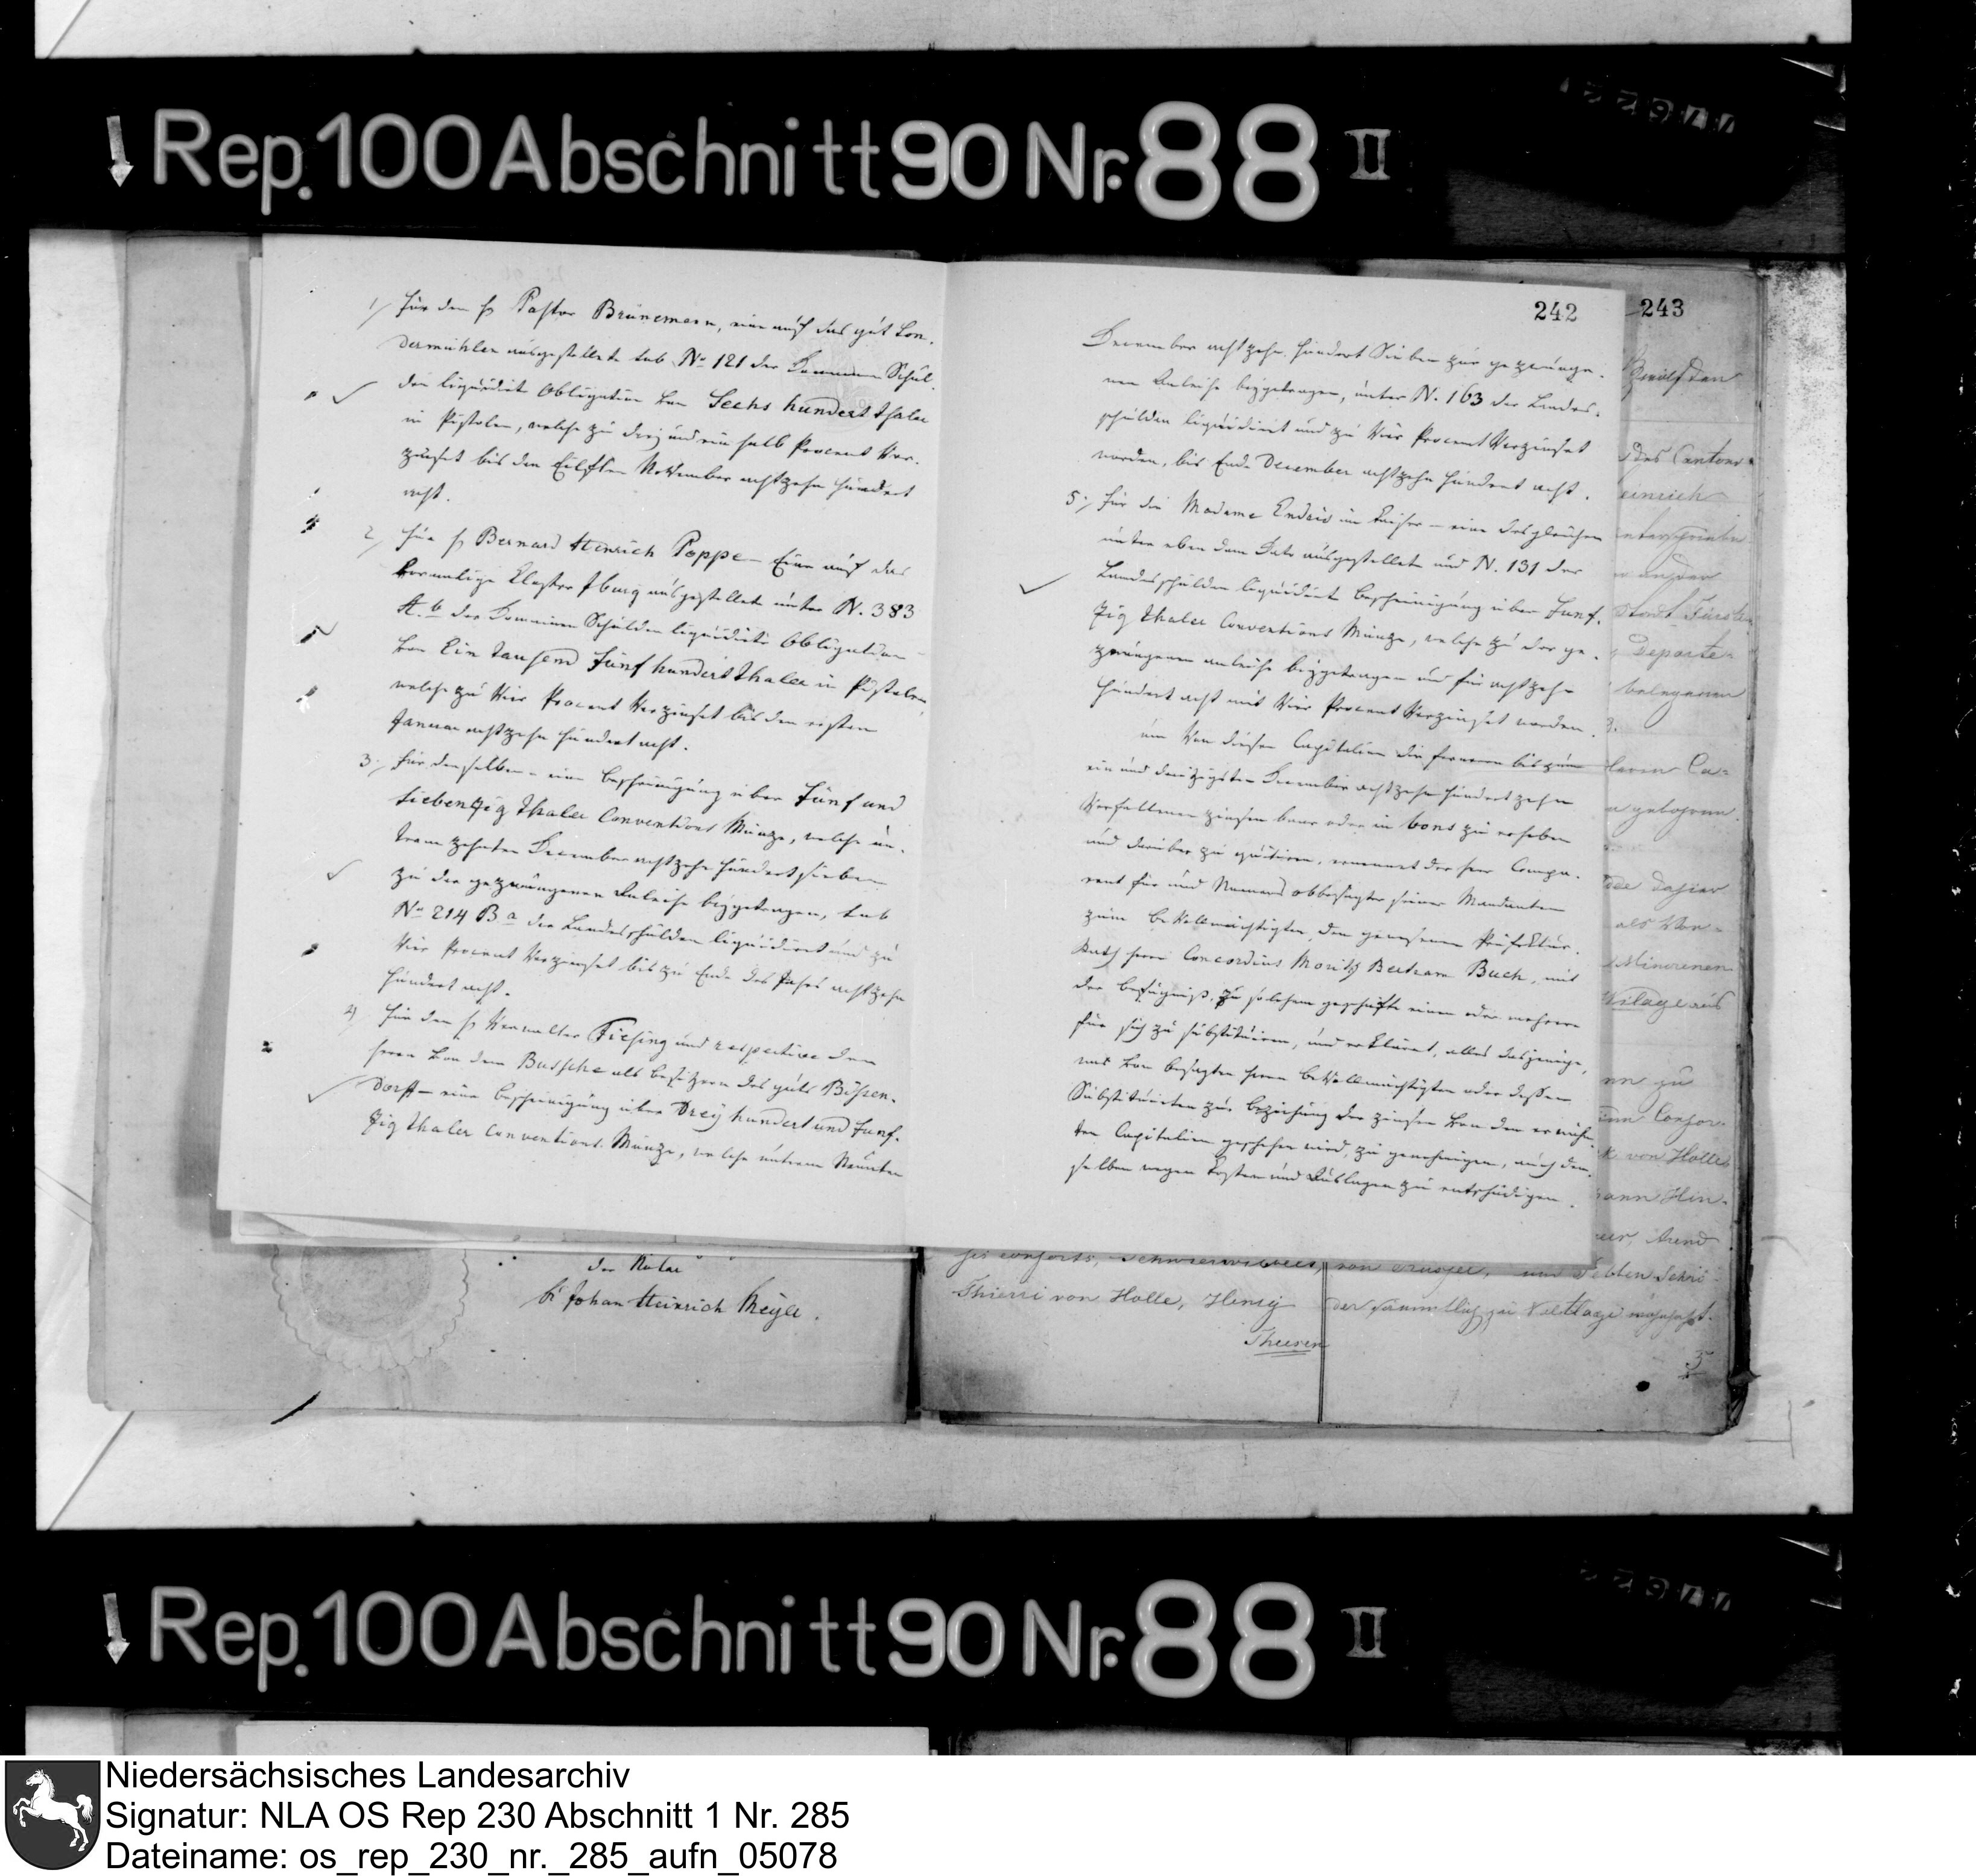 Rep. 100 Abschnitt 90 Nr. 88 II
1) für den H. Pastor Brünemann, eine auf das gut Lon-
dermühlen ausgestellte sub No 121 der Domainen Schul-
den liquidirte Obligation von Sechs hundert thaler
in Pistolen, welche zu drey und ein halb Procent Ver-
zinset bis den Eilften November achtzehn hundert
acht.
2) für H. Bernard Heinrich Poppe – Eine auf das
vormalige Kloster Iburg ausgestellte unter N. 383
A. b der Domainen Schulden liquidirte Obligation
von Ein tausend fünf hundert thaler in Pistolen,
welche zu Vier Procent Verzinset bis den ersten
Januar achtzehn hundert acht.
3) für denselben – eine bescheinigung über fünf und
siebenzig thaler Conventions Münze, welche un-
term zehnten December achtzehn hundert sieben
zu der gezwungenen Anleihe beygetragen, sub
No 214 B a der Landesschulden liquidirt und zu
Vier Procent Verzinset bis zu Ende des Jahrs achtzehn
hundert acht.
4) für den H. Verwalter Fiesing und respective dem
Herrn von dem Bussche als besitzern des guts Bissen-
dorff – eine bescheinigung über Drey hundert und funf-
zig thaler Conventions Münze, welche unterm Neunten
der Notar
Johan Heinrich Meyer.
242
December achtzehn hundert Sieben zur gezwunge-
nen Anleihe beygetragen, unter N. 163 der Landes-
schulden liquidirt und zu Vier Procent Verzinset
worden, bis Ende December achtzehn hundert acht.
5) für die Madame – eine desgleichen
unter eben dem Dato ausgestellte und N. 131 der
Landesschulden liquidirte bescheinigung über Funf-
zig thaler Conventions Münze, welche zu der ge-
zwungenen anleihe beygetragen und für achtzehn
hundert acht mit Vier Procent Verzinset worden.
um Von diesen Capitalien die ferneren bis zum
ein und dreizigsten December achtzehn hundert zehn
Verfallenen zinsen baar oder in bons zu erheben
und darüber zu quitiren, ernennet der Herr Compa-
rent für und Namens obbesagter seiner Mandanten
zum beVollmächtigten den gewesenen Präfektur-
Rath Herrn Concordius Moritz Bertram Buch, mit
der befugniß, zu solchem geschäfte einen oder mehrere
für sich zu substituiren, und erkläret, alles dasjenige,
was von besagten Herrn beVollmächtigten oder dessen
Substituirten zur beziehung der zinsen von den erwähn-
ten Capitalien geschehen wird, zu genehmigen, auch den-
selben wegen Kosten und Auslagen zu entschädigen.
243
des Canton
einrich
Departe-
belegenen
Ca-
dasier
als Vor-
Minorenen
zu
Consor-
von Holle
Hin-
Arend
Thierri von Holle, Henry
Theeren
der sammtlich zu
3
Rep. 100 Abschnitt 90 Nr. 88 II
Niedersächsisches Landesarchiv
Signatur: NLA OS Rep 230 Abschnitt 1 Nr. 285
Dateiname: os_rep_230_nr._285_aufn_05078